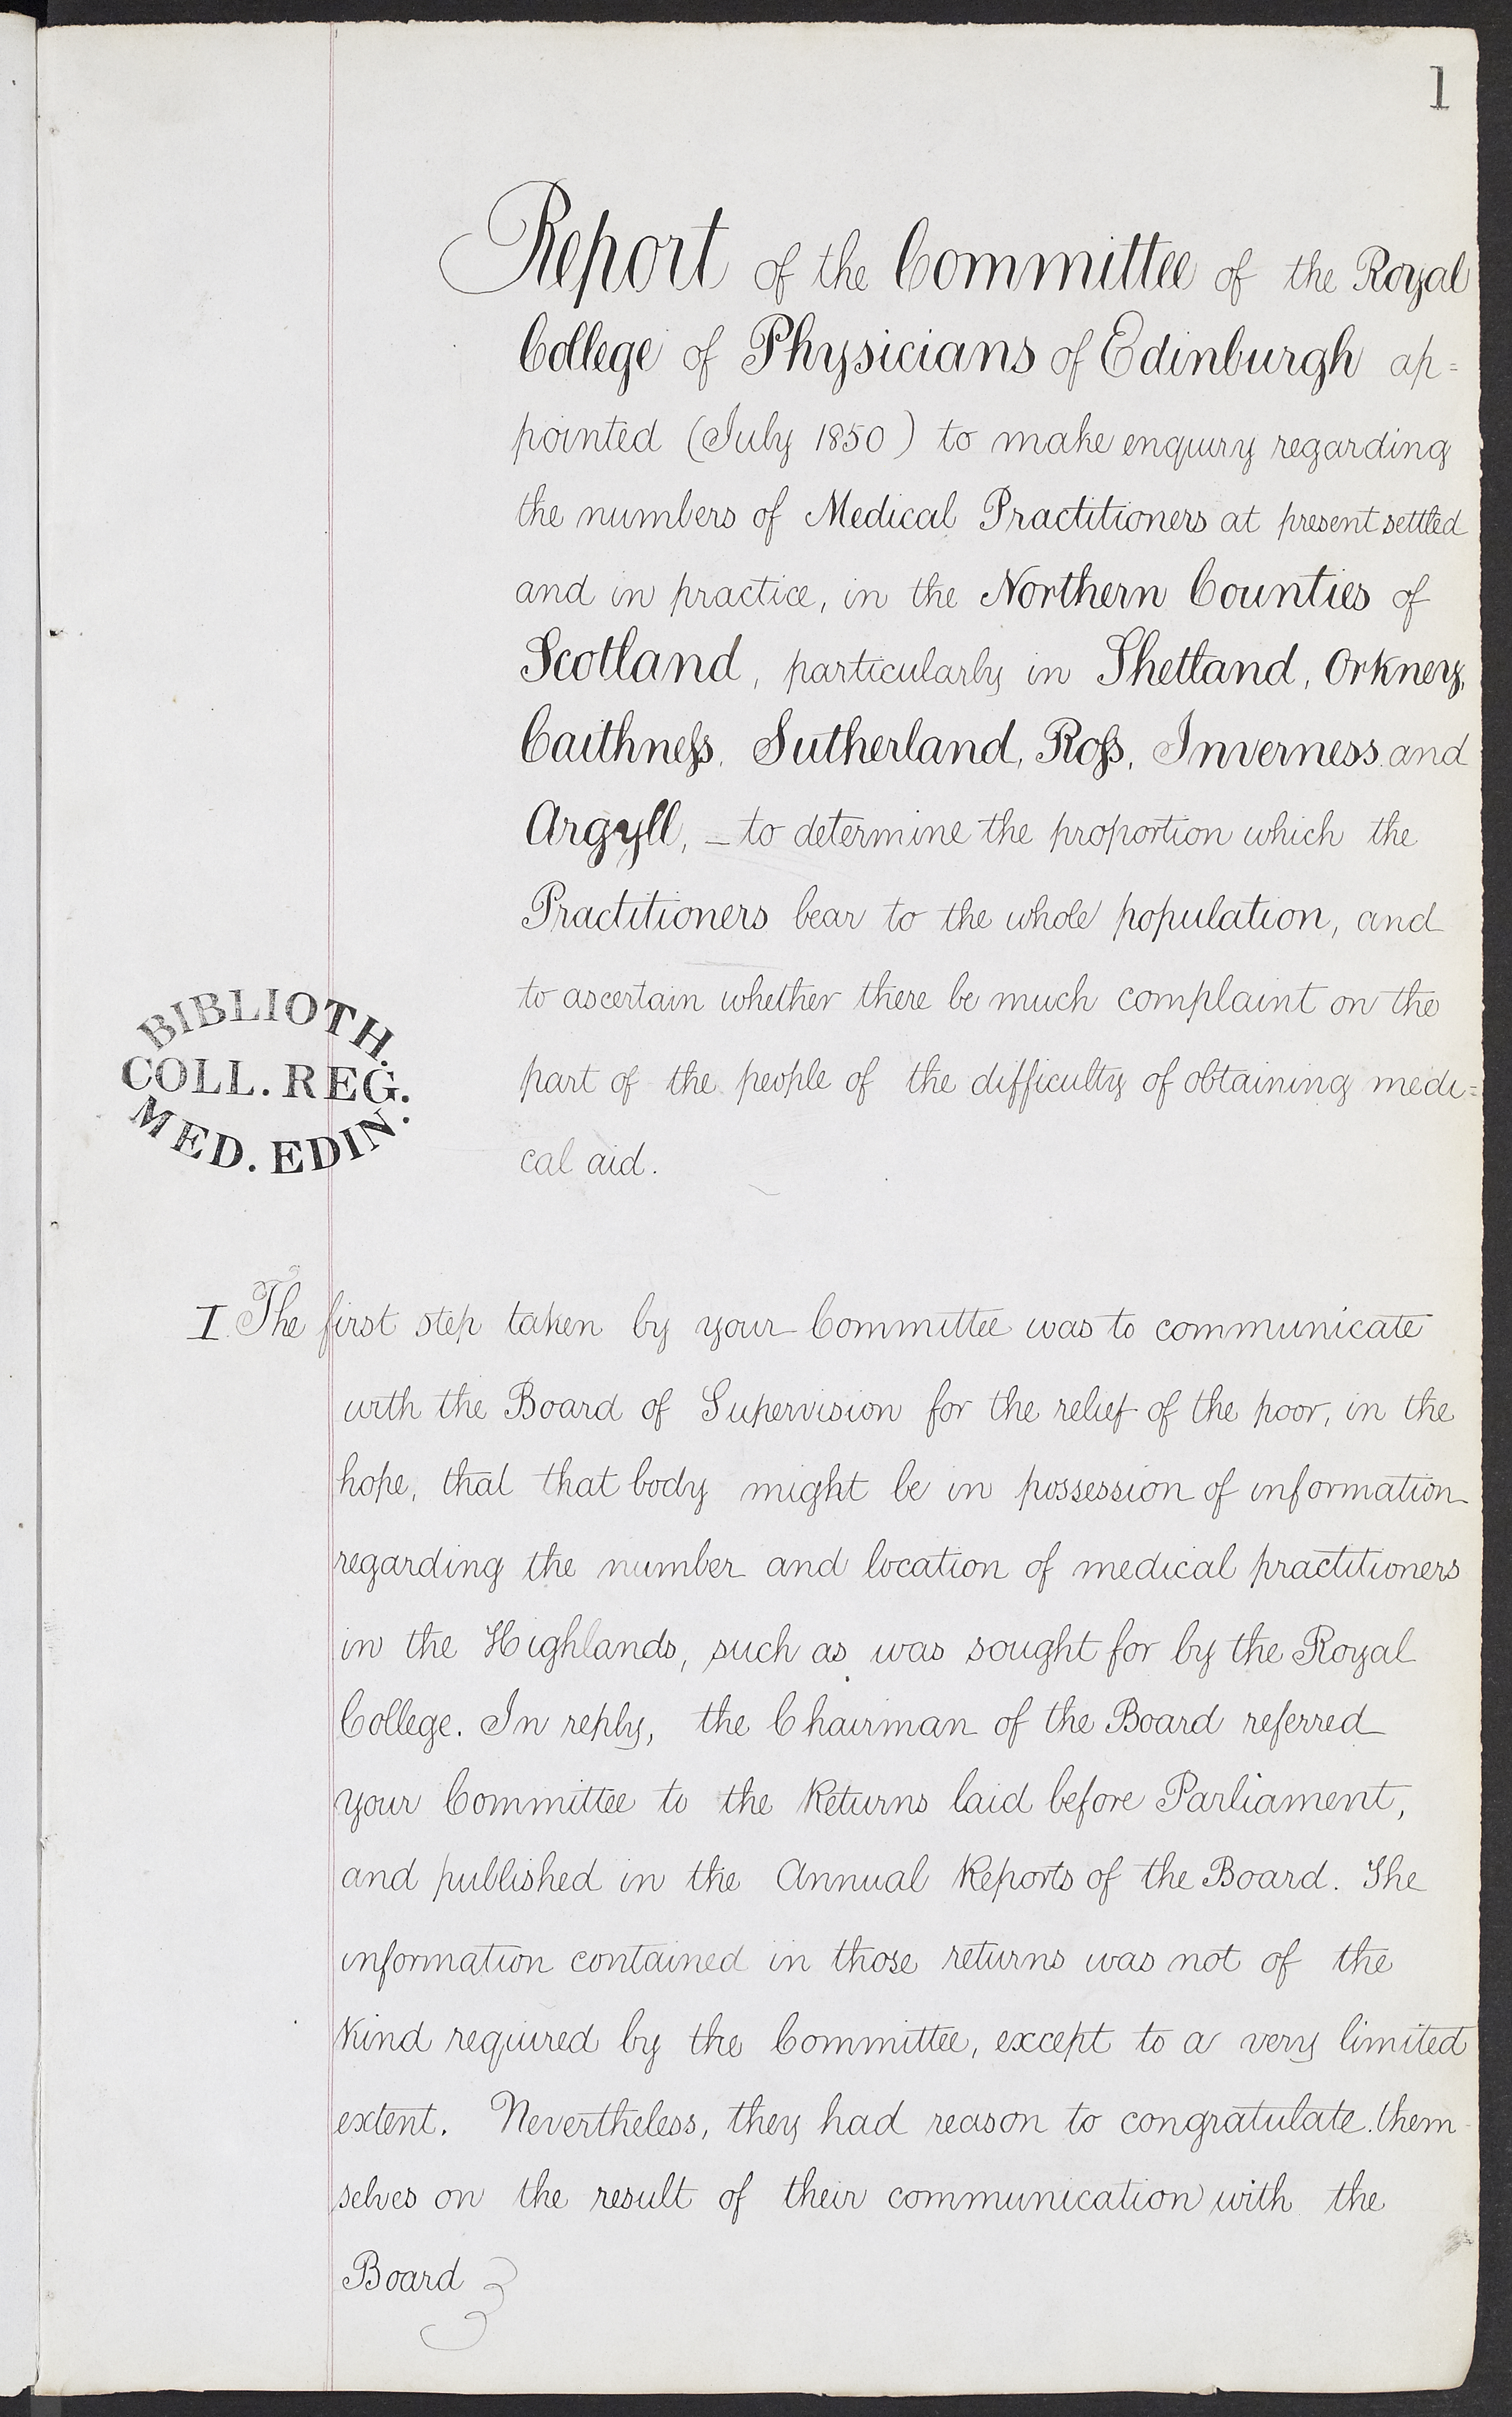 1
Report of the Committee of the Royal
College of Physicians of Edinburgh ap=
pointed (July 1850) to make enquiry regarding
the numbers of Medical Practitioners at present settled
and in practice, in the Northern Counties of
Scotland, particularly in Shetland, Orkney,
Caithness, Sutherland, Ross, Inverness and
Argyll, – to determine the proportion which the
Practitioners bear to the whole population, and
to ascertain whether there be much complaint on the
part of the people of the difficulty of obtaining medi=
cal aid.
BIBLIOTH.
COLL. REG.
MED. EDIN.
I. The first step taken by your Committee was to communicate
with the Board of Supervision for the relief of the poor, in the
hope, that that body might be in possession of information
regarding the number and location of medical practitioners
in the Highlands, such as was sought for by the Royal
College. In reply, the Chairman of the Board referred
your Committee to the Returns laid before Parliament,
and published in the Annual Reports of the Board. The
information contained in those returns was not of the
kind required by the Committee, except to a very limited
extent. Nevertheless, they had reason to congratulate them-
selves on the result of their communication with the
Board